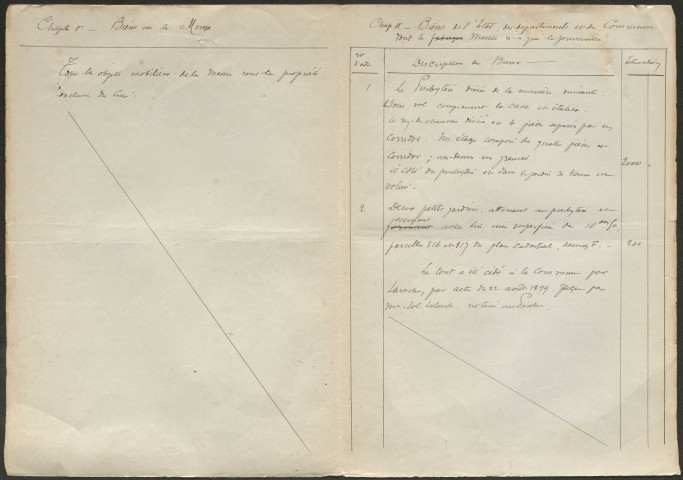 Chapitre 1er - Biens de la Mense
Tous les objets mobiliers de la mense sont la propriété
exclusive du Curé.
Chap II - Biens de l'Etat, des départements et des Communes
dont la fabrique Mense n'a que la jouissance
Nos d'ordre
Description des Biens
Estimation
1
Le Presbytère divisé de la manière suivante :
Sous-sol comprenant la cave et
le rez-de-chaussée divisé en 4 pièces séparées par un
corridor. Un étage composé de quatre pièces et
corridor ; au-dessus un grenier
à côté du presbytère et dans le jardin se trouve un
2000
2
Deux petits jardins, attenant au presbytère et
formant avec lui une superficie de 10
parcelles 816 et 817 du plan cadastral, section F.
200
Le tout a été cédé à la Commune par
par acte du 22 août 1899 par
notaire